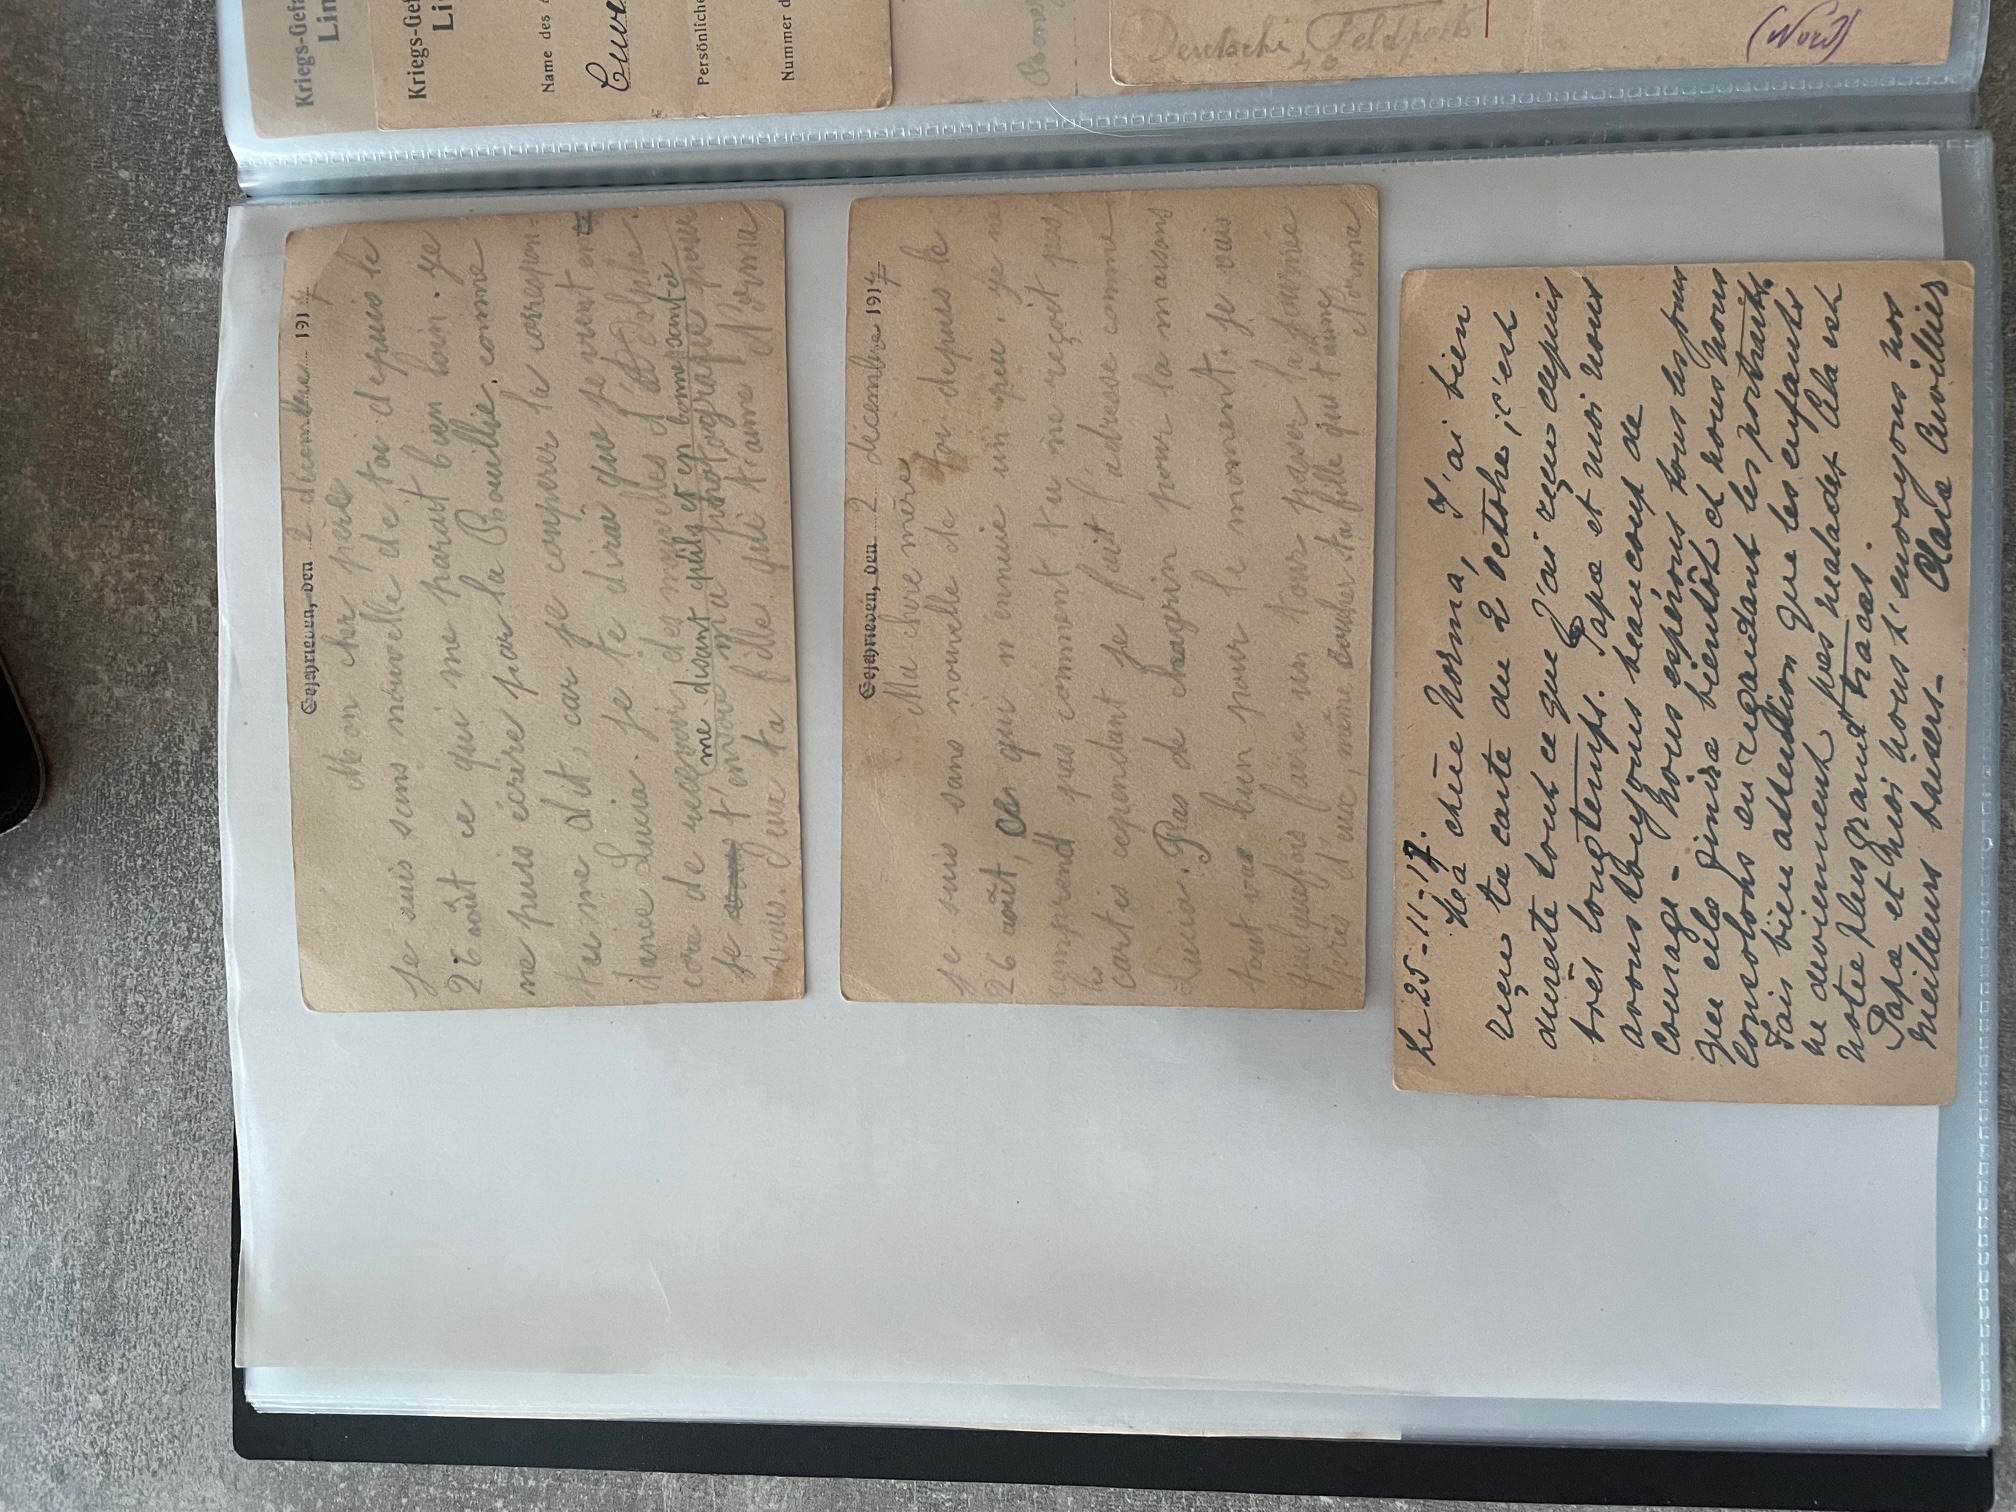 Kriegs-Gefa
Lin
Kriegs-Gef
Li
Name des
Persönliche
Nummer d
Deutsche Feldpost
(Nord)
Geschrieben, den 2 décembre 1917
Mon cher père
Je suis sans nouvelle de toi depuis le
26 août ce qui me parait bien loin. Je
ne puis écrire par la Bouillie, comme
tu me dit, car je comperer la correspon-
dance Lucia. Je te dirai que je vient en
core de recevoir des nouvelles d'Adolphe
(me disant qu'ils et en bonne santé
Je t'envoie ma photographie pour
vous. D'une ta fille qui t'aime Norma
Geschrieben, den 2 décembre 1917
Ma chère mère
Je suis sans nouvelle de toi depuis le
26 août, ce qui m'ennuie un peu, je ne
comprend pas comment tu ne reçoit pas
les
cartes cependant je fait l'adresse comme
Lucia. Pas de chagrin pour la maison
tout va bien pour le moment. Je vais
quelquefois faire un tour passer la journée
près d'eux, même coucher ta fille qui t'aime
Norma
Le 25-11-17.
Ma chère Norma, J'ai bien
reçu ta carte du 2 octobre, c'est
du reste tout ce que j'ai reçu depuis
très longtemps. Papa et moi nous
avons toujours beaucoup de
courage - Nous espérons tous les jours
que cela finira bientôt et nous nous
consolons en regardant les portraits
Fais bien attention que les enfants
ne deviennent pas malades cela est
notre plus grand tracas.
Papa et moi nous t'envoyons nos
meilleurs baisers- Clara Cuvillier